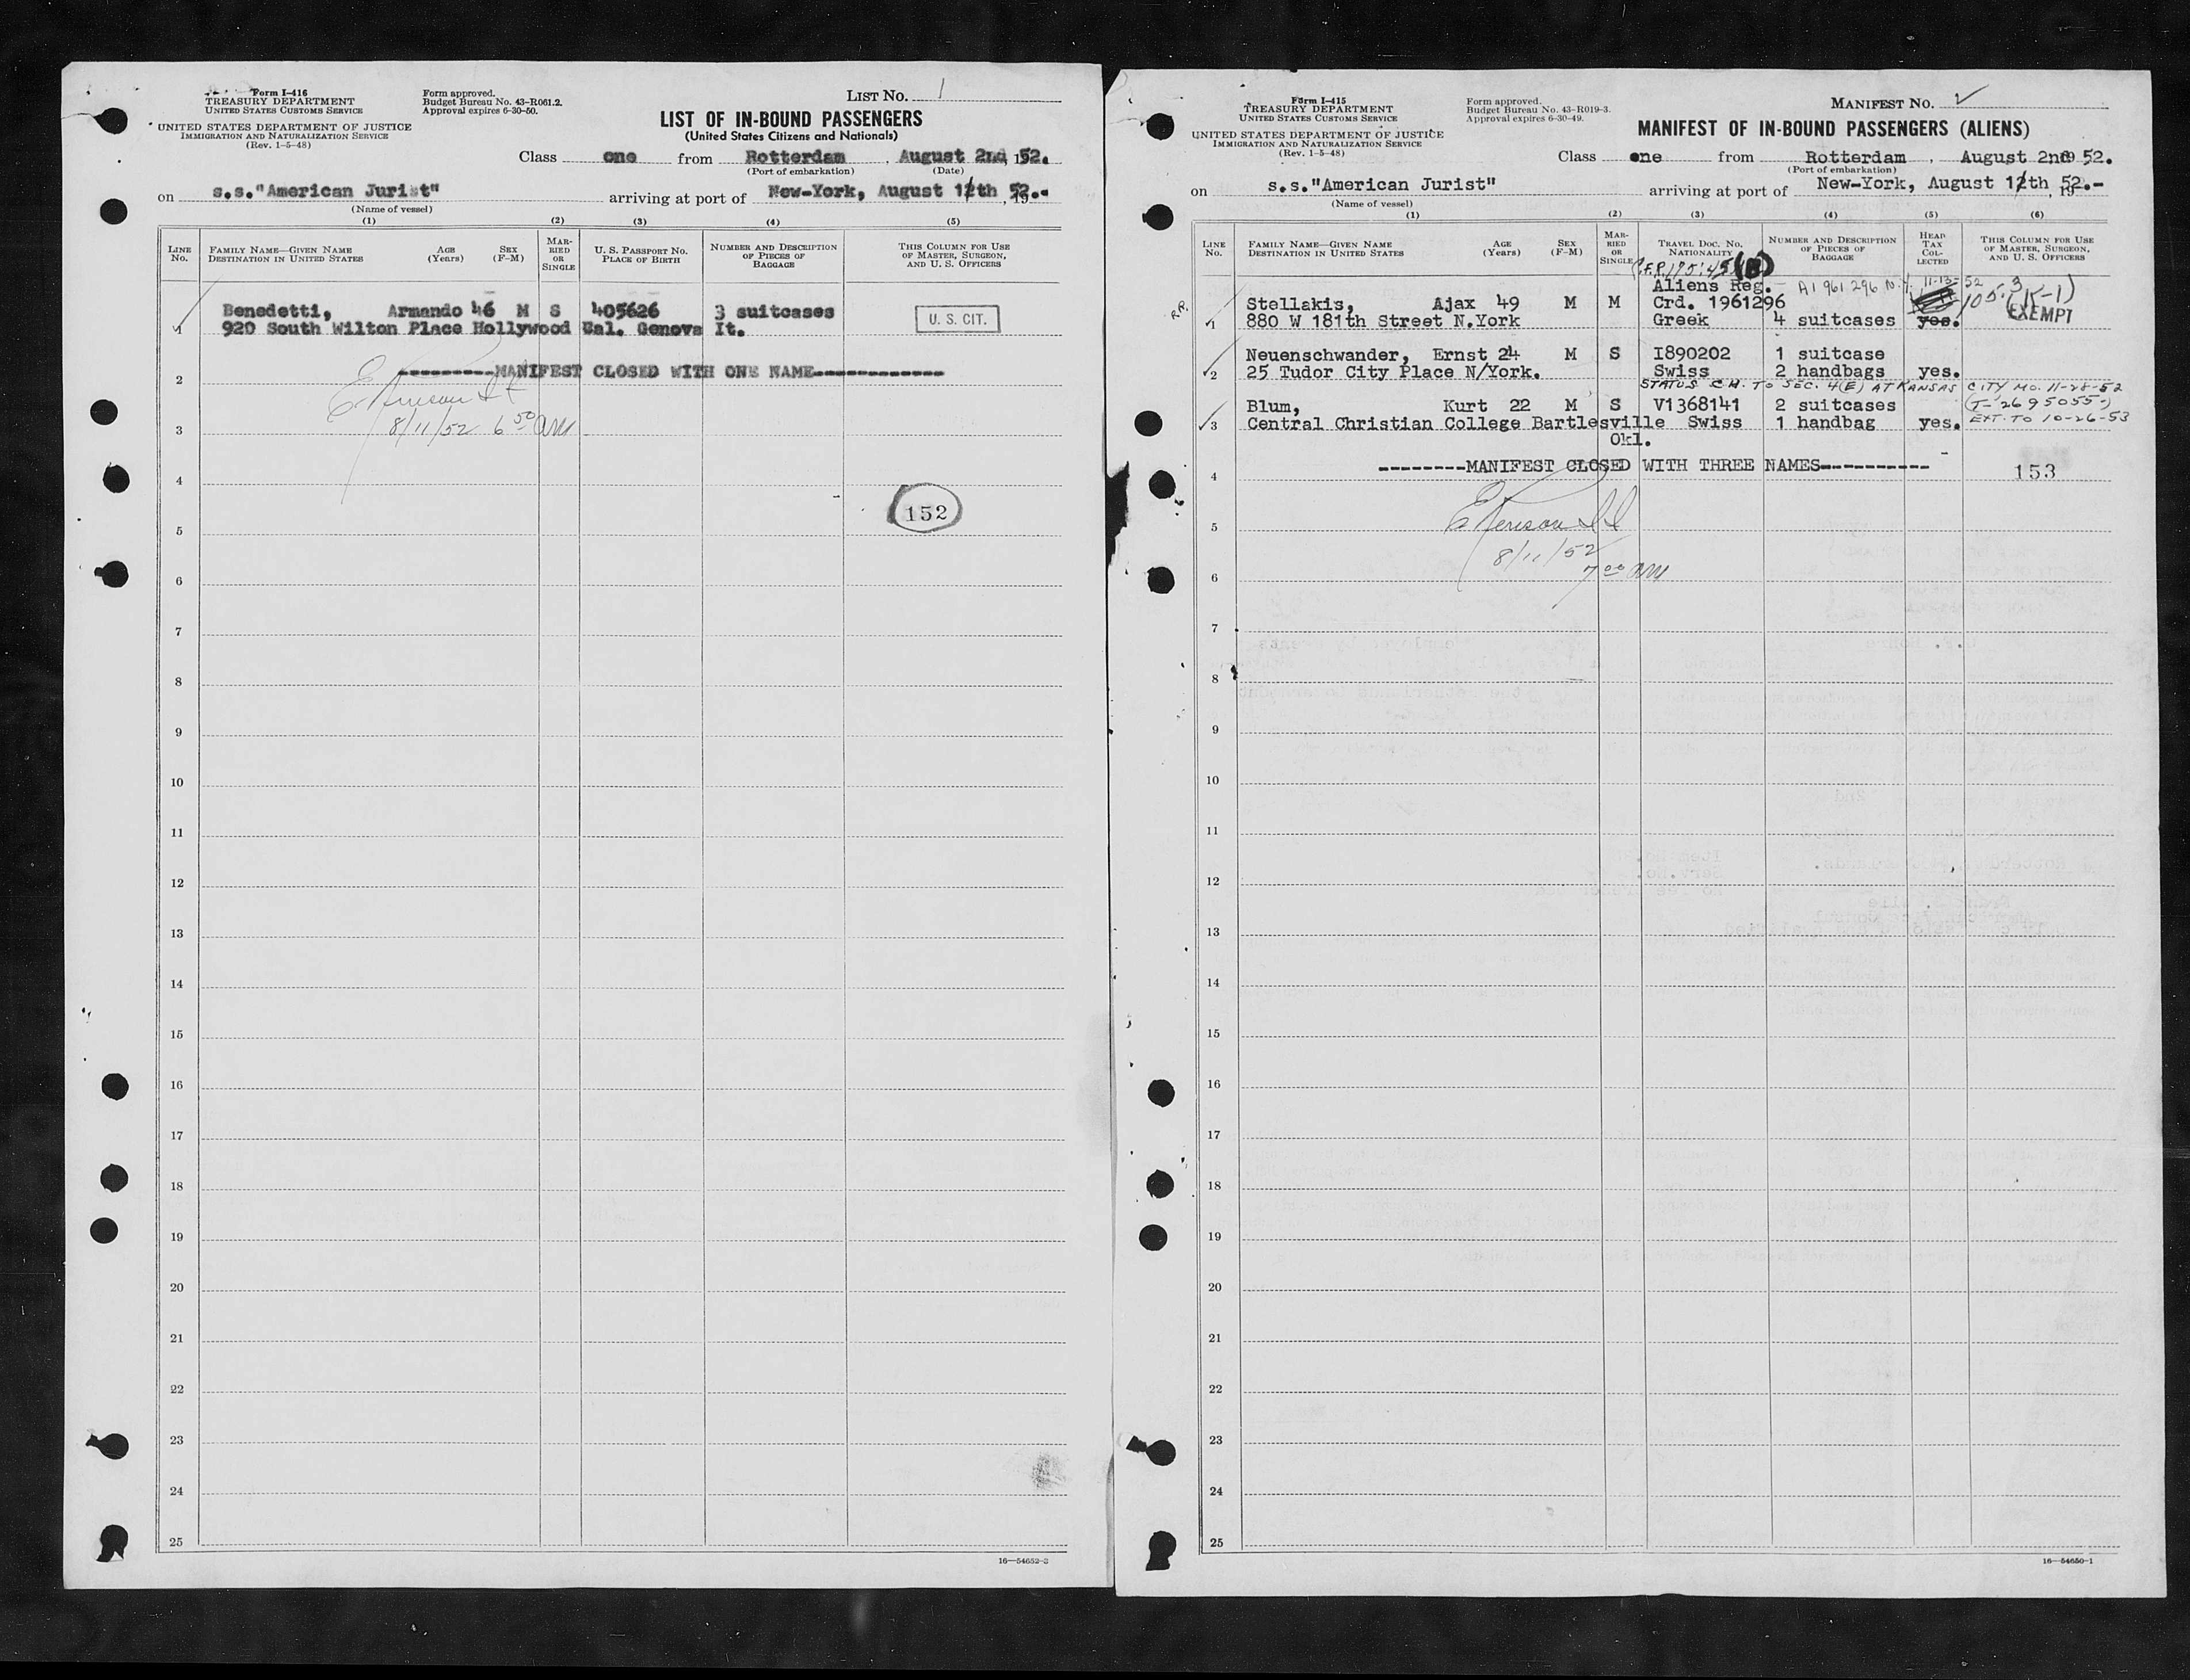 Form I-416
TREASURY DEPARTMENT
UNITED STATES CUSTOMS SERVICE
UNITED STATES DEPARTMENT OF JUSTICE
IMMIGRATION AND NATURALIZATION SERVICE
(Rev. 1-5-48)
Form approved.
Budget Bureau No. 43-R061.2.
Approval expires 6-30-50.
LIST NO. 1
LIST OF IN-BOUND PASSENGERS
(United States Citizens and Nationals)
Class one from Rotterdam, August 2nd, 1952.
(Port of embarkation) (Date)
on s.s."American Jurist" arriving at port of New-York, August 11th, 1952.-
(Name of vessel)
(1) (2) (3) (4) (5)
LINE NO.
FAMILY NAME—GIVEN NAME
DESTINATION IN UNITED STATES
AGE (Years)
SEX (F-M)
MARRIED OR SINGLE
U. S. PASSPORT NO.
PLACE OF BIRTH
NUMBER AND DESCRIPTION OF PIECES OF BAGGAGE
THIS COLUMN FOR USE OF MASTER, SURGEON, AND U. S. OFFICERS
Benedetti, Armando 46 M S 405626 3 suitcases U. S. CIT.
1 920 South Wilton Place Hollywood Cal. Genova It.
2 ---------MANIFEST CLOSED WITH ONE NAME------------
3 8/11/52 6 50 AM
4
152
5
6
7
8
9
10
11
12
13
14
15
16
17
18
19
20
21
22
23
24
25
16—54652-2
Form I-415
TREASURY DEPARTMENT
UNITED STATES CUSTOMS SERVICE
UNITED STATES DEPARTMENT OF JUSTICE
IMMIGRATION AND NATURALIZATION SERVICE
(Rev. 1-5-48)
Form approved.
Budget Bureau No. 43-R019-3.
Approval expires 6-30-49.
MANIFEST NO. 2
MANIFEST OF IN-BOUND PASSENGERS (ALIENS)
Class one from Rotterdam, August 2nd 1952.
(Port of embarkation)
on s.s."American Jurist" arriving at port of New-York, August 11th, 1952.-
(Name of vessel)
(1) (2) (3) (4) (5) (6)
LINE NO.
FAMILY NAME—GIVEN NAME
DESTINATION IN UNITED STATES
AGE (Years)
SEX (F-M)
MARRIED OR SINGLE
TRAVEL DOC. NO.
NATIONALITY
NUMBER AND DESCRIPTION OF PIECES OF BAGGAGE
HEAD TAX COLLECTED
THIS COLUMN FOR USE OF MASTER, SURGEON, AND U. S. OFFICERS
Aliens Reg. A1 961 296 N.Y. 11-13-52
R.R. Stellakis, Ajax 49 M M Crd. 1961296 105.3 (K-1)
1 880 W 181th Street N.York Greek 4 suitcases yes. EXEMPT
Neuenschwander, Ernst 24 M S I890202 1 suitcase
2 25 Tudor City Place N/York. Swiss 2 handbags yes.
STATUS CH. TO SEC. 4(E) AT KANSAS CITY MO. 11-28-52
Blum, Kurt 22 M S V1368141 2 suitcases (T-2695055-)
3 Central Christian College Bartlesville Swiss 1 handbag yes. EXT. TO 10-26-53
Okl.
4 --------MANIFEST CLOSED WITH THREE NAMES----------
153
5
8/11/52
6 7 00 AM
7
8
9
10
11
12
13
14
15
16
17
18
19
20
21
22
23
24
25
16—54650-1